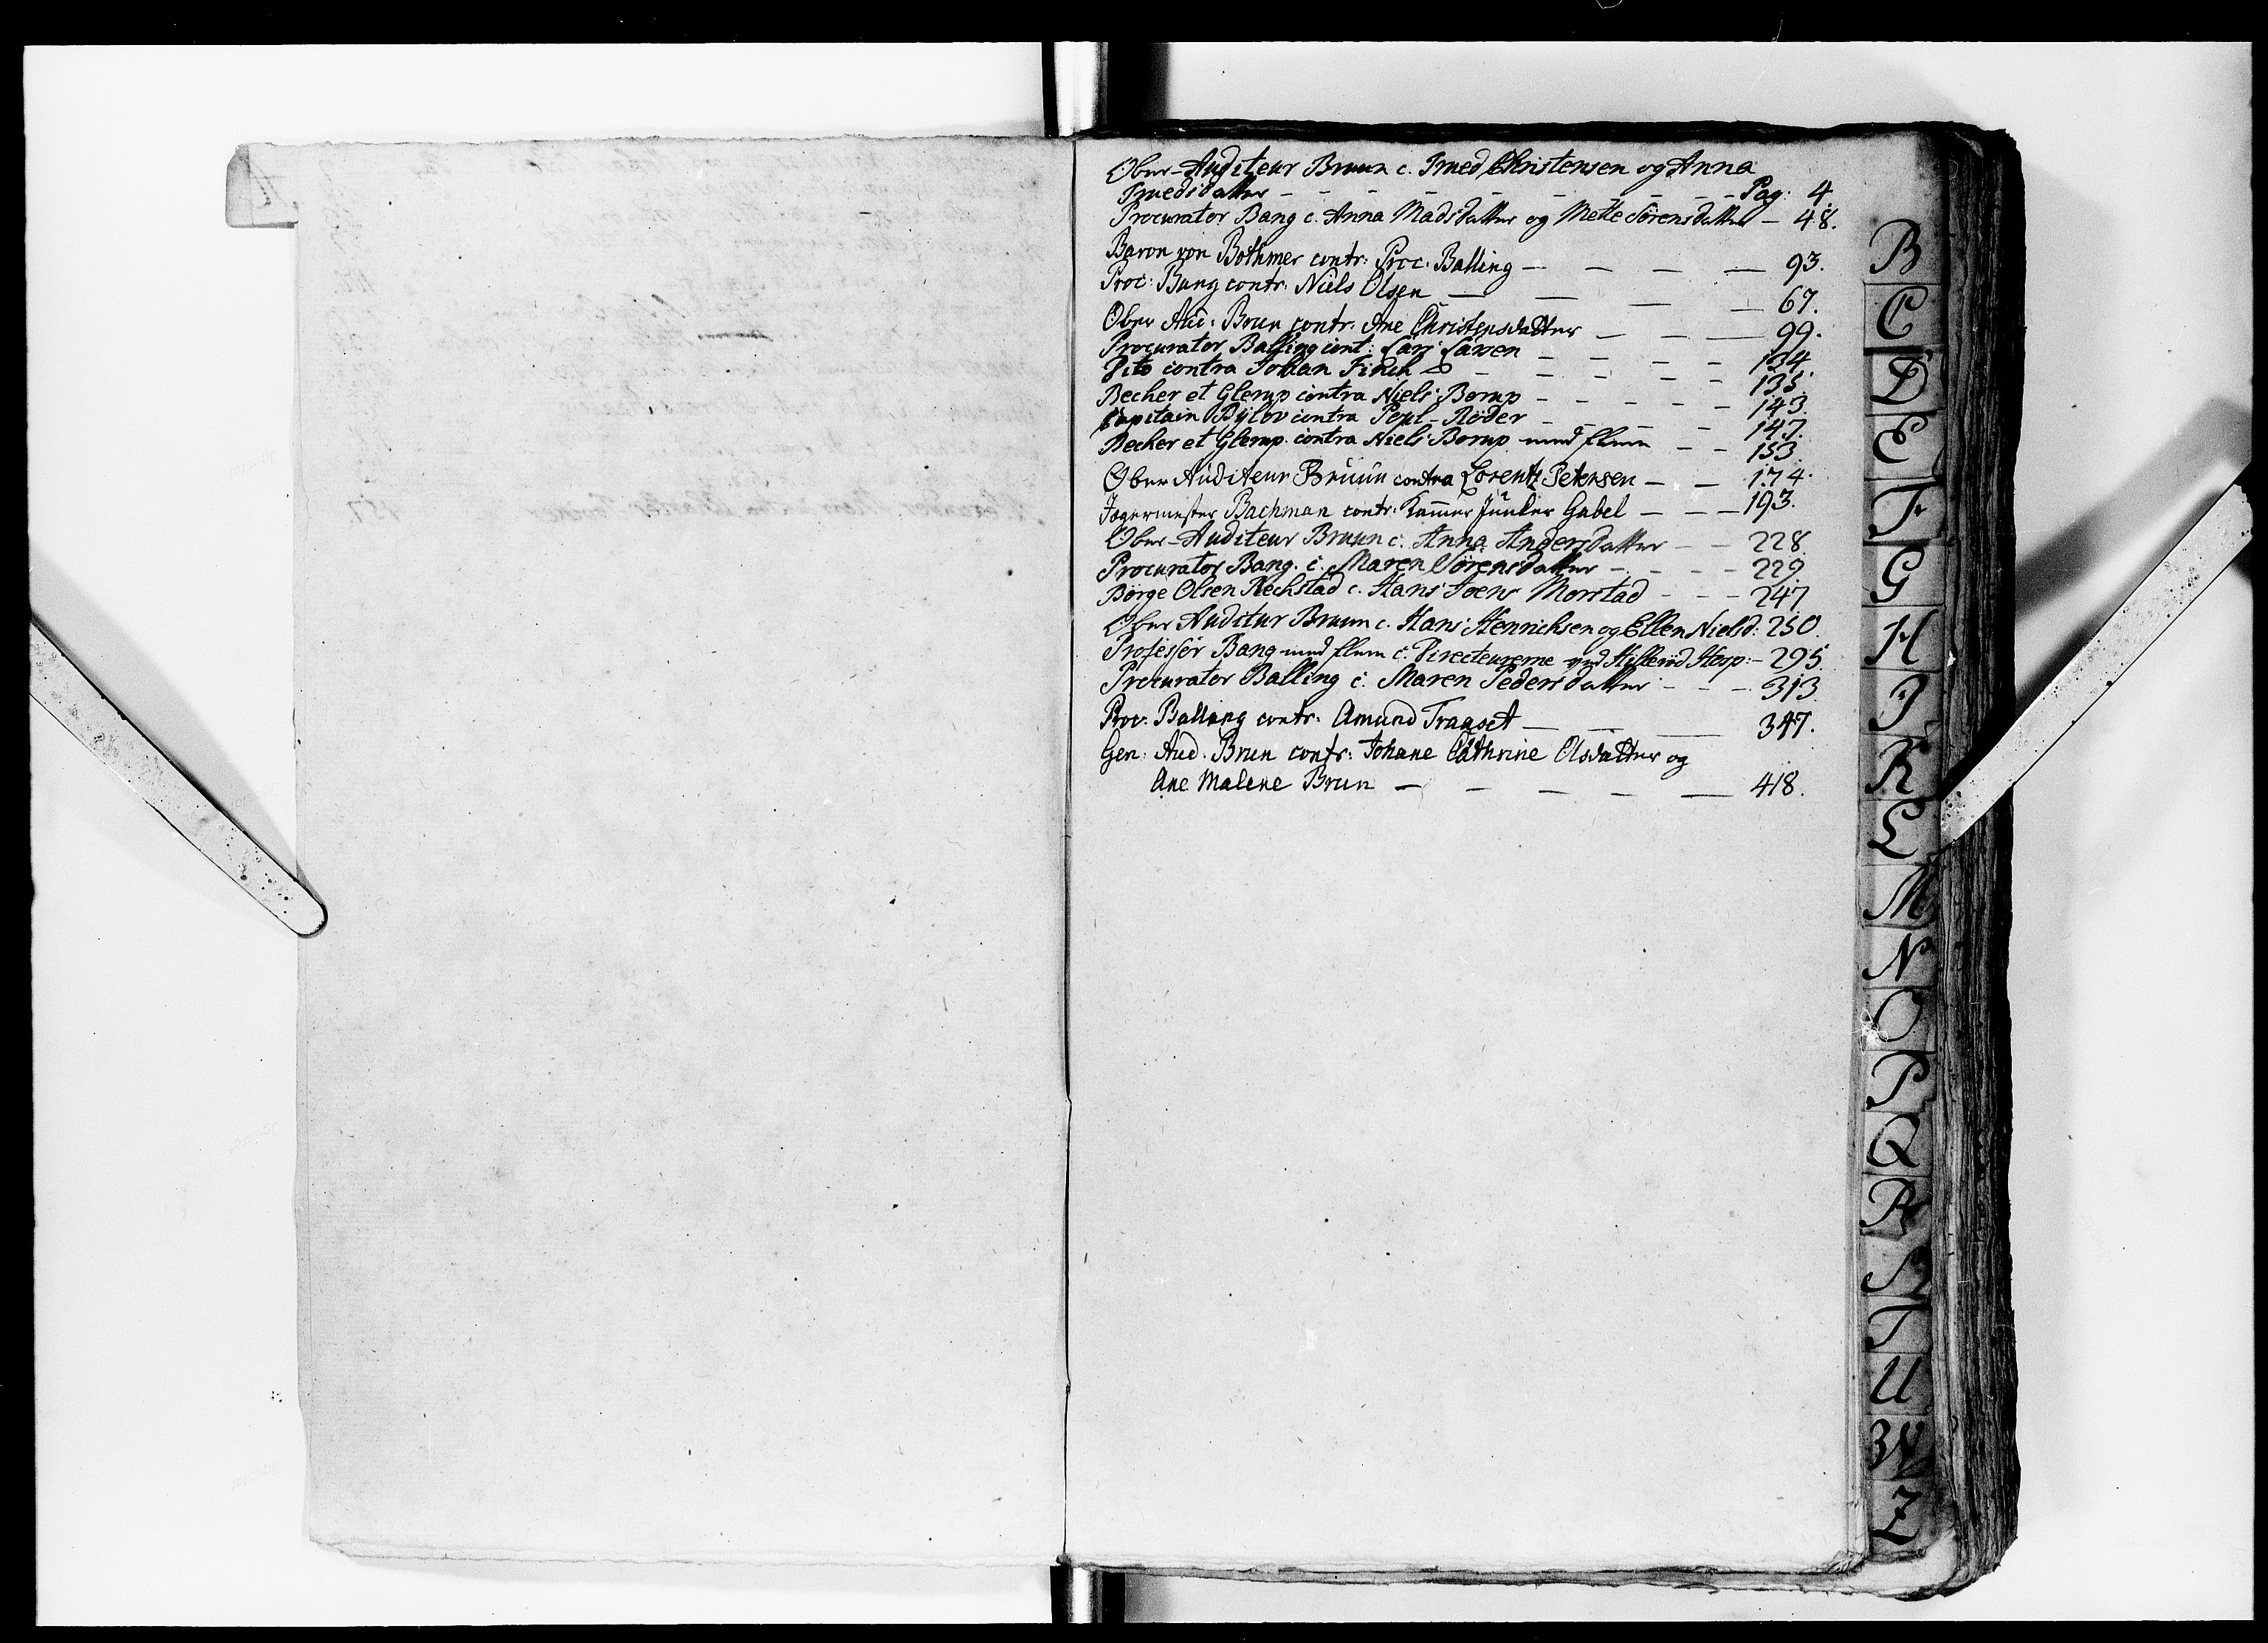 Ober-Auditeur Bruun c. Trued Christensen og Anna
Truedsdatter - - - - - - - - Pag: 4.
Procurator Bang c. Anna Madsdatter og Mette Sörensdatter - 48.
Baron von Bothmer contr: Proc: Balling - - - - 93.
Proc: Bang contr: Niels Olsen - - - - 67.
Ober Aud: Brun contr: Ane Christensdatter - - - 99.
Procurator Balling cont: Lars Larsen - - - - 134.
Dito contra Johan Finck - - - - - 135.
Becher et Glerup contra Niels Borup - - - - 143.
Capitain Bylov contra Poul Röder - - - - 147.
Becher et Glerup contra Niels Borup med flere - - 153.
Ober Auditeur Bruun contra Lorentz Petersen - - 174.
Jægermester Bachman contr: Kammer Junker Gabel - - - 193.
Ober-Auditeur Bruun c. Anna Andersdatter - - 228.
Procurator Bang c. Maren Sörensdatter - - - - 229.
Börge Olsen Rechstad c. Hans Joens Morstad - - - 247.
Ober Auditur Bruun c. Hans Henrichsen og Ellen Nielsd: 250.
Professor Bang med flere c. Directeurerne ved Hilleröd Hosp: - 295.
Procurator Balling c. Maren Pedersdatter - - - 313.
Proc: Balling contr: Amund Traaset - - - 347.
Gen: Aud: Brun contr: Johane Cathrine Olsdatter og
Ane Malene Brun - - - - - 418.
B
C
D
E
F
G
H
I
K
L
M
N
O
P
Q
R
S
T
U
W
Z